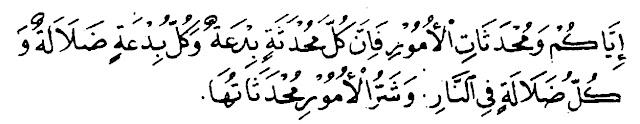 إِيَّاكُمْ وَمُحْدَثَاتِ الْأُمُوْرِ فَإِنَّ كُلَّ مُحْدَثَةٍ بِدْعَةٌ وَكُلَّ بِدْعَةٍ ضَلَالَةٌ وَ
كُلُّ ضَلَالَةٍ فِي النَّارِ. وَشَرُّ الْأُمُوْرِ مُحْدَثَاتُهَا.